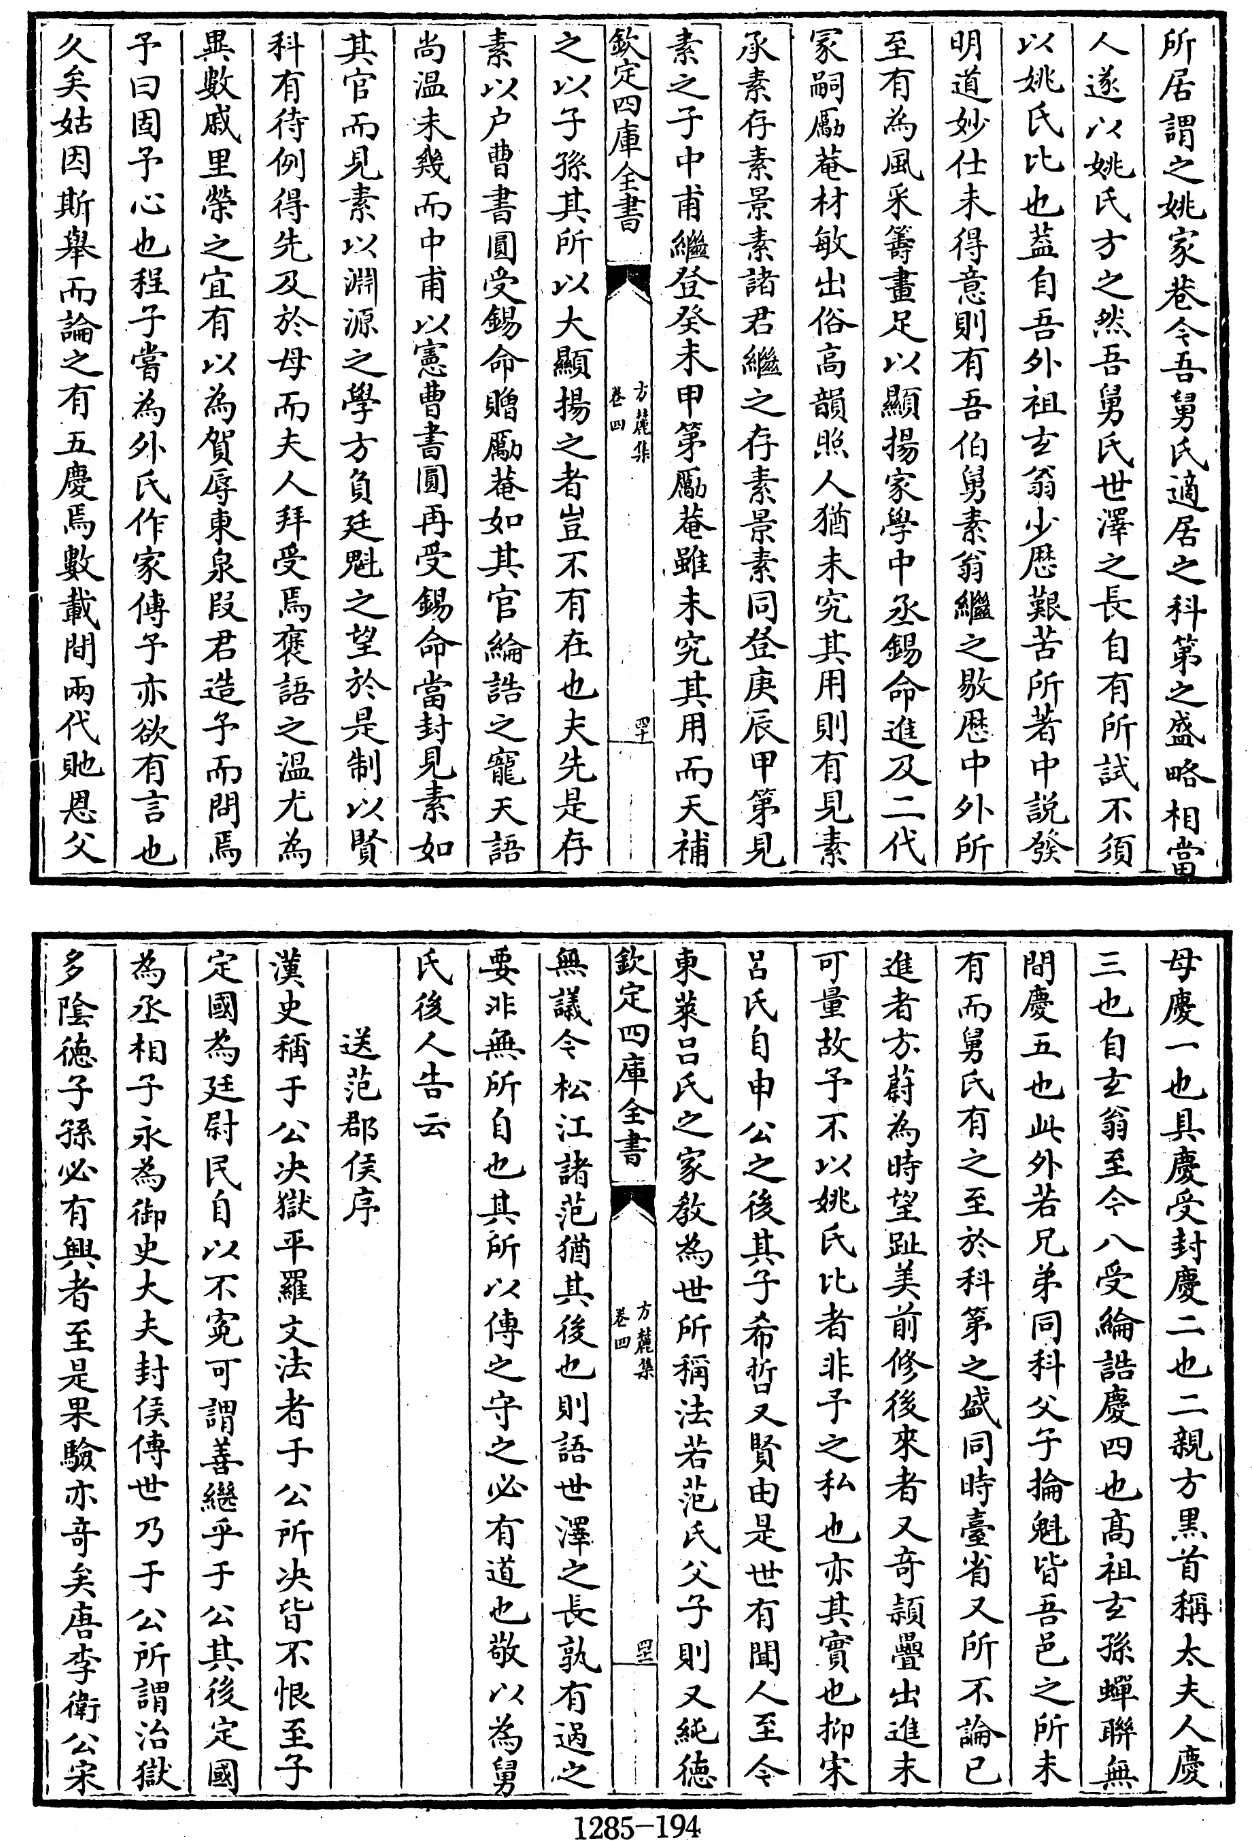 所居謂之姚家巷今吾舅氏適居之科第之盛略相當
人遂以姚氏方之然吾舅氏世澤之長自有所試不須
以姚氏比也葢自吾外祖玄翁少歴艱苦所著中説發
明道妙仕未得意則有吾伯舅素翁繼之敭歴中外所
至有為風采籌畫足以顯揚家學中丞錫命進及二代
冡嗣勵菴材敏出俗高韻照人猶未究其用則有見素
承素存素景素諸君繼之存素景素同登庚辰甲第見
素之子中甫繼登癸未甲第勵菴雖未究其用而天補
欽定四庫全書
方麓集
卷四
四十
之以子孫其所以大顯揚之者豈不有在也夫先是存
素以户曹書圓受錫命贈勵菴如其官綸誥之寵天語
尚溫未幾而中甫以憲曹書圓再受錫命當封見素如
其官而見素以淵源之學方負廷魁之望於是制以賢
科有待例得先及於母而夫人拜受焉褒語之溫尤為
異數戚里榮之宜有以為賀辱東泉段君造予而問焉
予曰固予心也程子嘗為外氏作家傳予亦欲有言也
久矣姑因斯舉而論之有五慶焉數載間兩代貤恩父
母慶一也具慶受封慶二也二親方黒首稱太夫人慶
三也自玄翁至今八受綸誥慶四也髙祖玄孫蟬聯無
間慶五也此外若兄弟同科父子掄魁皆吾邑之所未
有而舅氏有之至於科第之盛同時臺省又所不論已
進者方蔚為時望趾美前修後來者又奇頴疊出進未
可量故予不以姚氏比者非予之私也亦其實也抑宋
吕氏自申公之後其子希哲又賢由是世有聞人至今
東萊吕氏之家教為世所稱法若范氏父子則又純德
欽定四庫全書
方麓集
卷四
四十一
無議今松江諸范猶其後也則語世澤之長孰有過之
要非無所自也其所以傳之守之必有道也敬以為舅
氏後人告云
送范郡侯序
漢史稱于公决獄平羅文法者于公所决皆不恨至子
定國為廷尉民自以不寃可謂善繼乎于公其後定國
為丞相子永為御史大夫封侯傳世乃于公所謂治獄
多陰德子孫必有興者至是果驗亦奇矣唐李衛公宋
1285-194